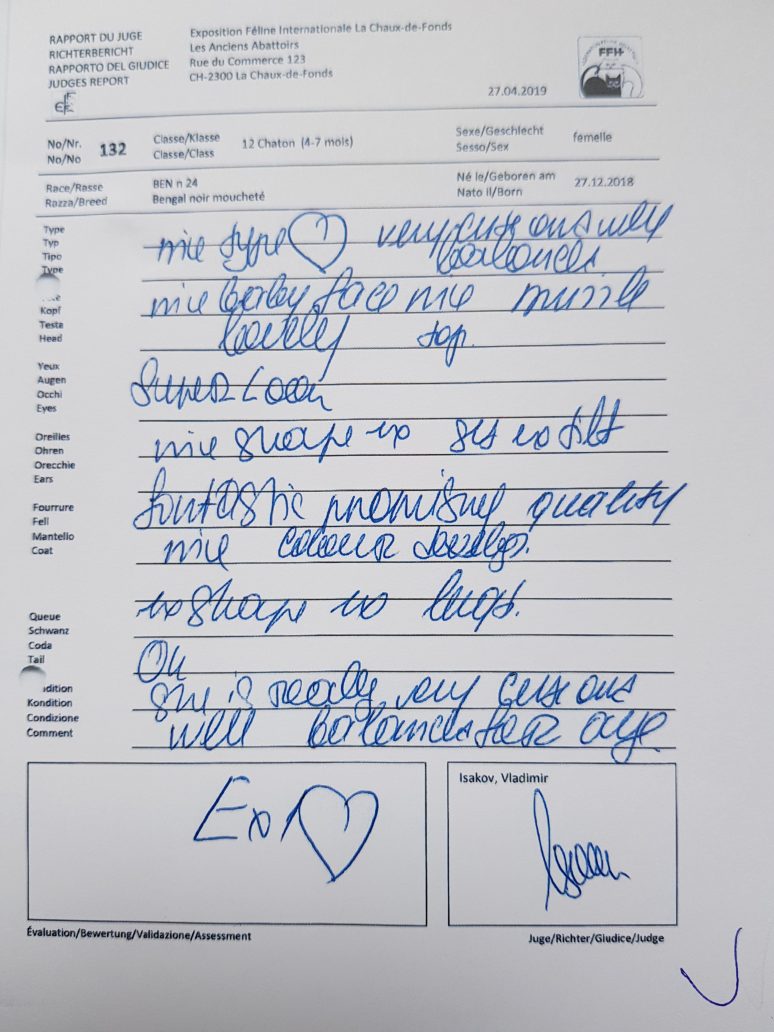 RAPPORT DU JUGE
RICHTERBERICHT
RAPPORTO DEL GIUDICE
JUDGES REPORT
Exposition Féline Internationale La Chaux-de-Fonds
Les Anciens Abattoirs
Rue du Commerce 123
CH-2300 La Chaux-de-Fonds
27.04.2019
FFH
No/Nr.
No/No
132
Classe/Klasse
Classe/Class
12 Chaton (4-7 mois)
Sexe/Geschlecht
Sesso/Sex
femelle
Race/Rasse
Razza/Breed
BEN n 24
Bengal noir moucheté
Né le/Geboren am
Nato il/Born
27.12.2018
Type
Typ
Tipo
Type
nice type ♡ very cute and well
balanced
Kopf
Testa
Head
nice baby face nice muzzle
lovely top.
Yeux
Augen
Occhi
Eyes
Super Look
Oreilles
Ohren
Orecchie
Ears
nice shape ex set ex tilt
Fourrure
Fell
Mantello
Coat
fantastic promising quality
nice colour develop.
Queue
Schwanz
Coda
Tail
ex shape ex length.
Kondition
Condizione
Comment
Ok
she is really very cute and
well balanced for age.
Ex 1 ♡
Isakov, Vladimir
Évaluation/Bewertung/Validazione/Assessment
Juge/Richter/Giudice/Judge